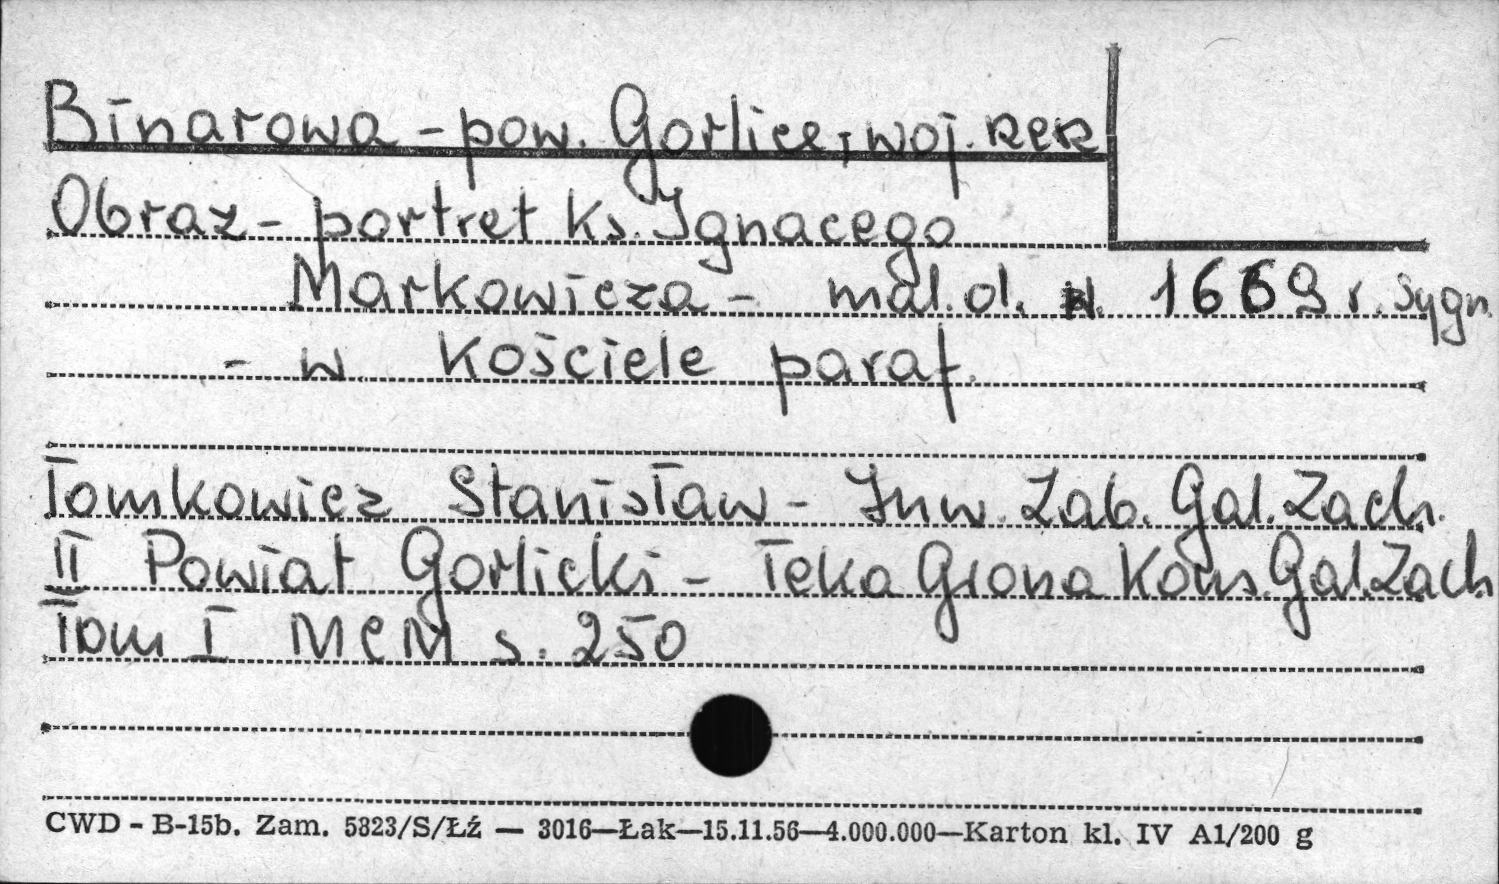 Binarowa - pow. Gorlice, woj. Rzk
Obraz - portret Ks. Ignacego
Markowicza - mal. ol. 1669 r. sygn.
- w Kościele paraf.
Tomkowicz Stanisław - Inw. Zab. Gal. Zach.
II Powiat Gorlicki - Teka Grona Kons. Gal. Zach
Tom I MCM s. 250
CWD - B-15b. Zam. 5323/S/Łź — 3016—Łak—15.11.56—4.000.000—Karton kl. IV A1/200 g